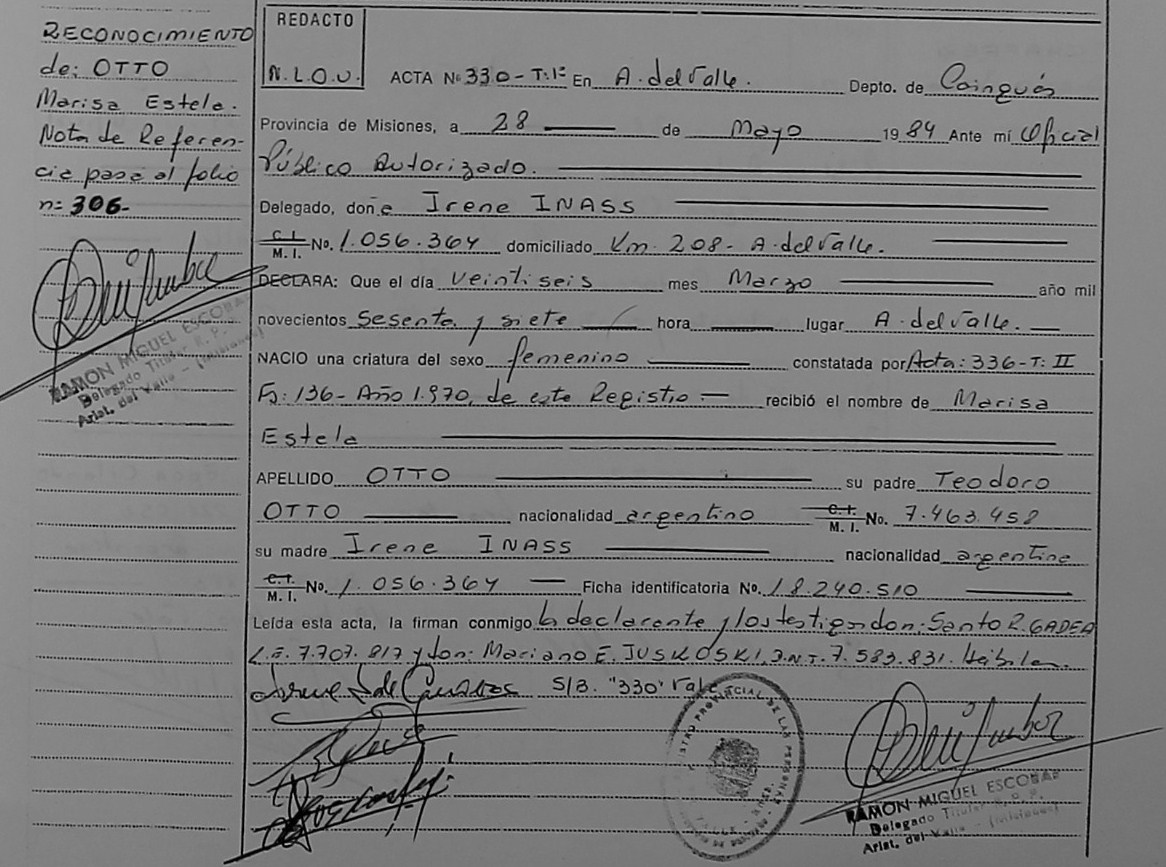 RECONOCIMIENTO
de: OTTO
Marisa Estela.
Nota de Referen-
cia pasa al folio
n= 306-
RAMON MIGUEL ESCOBAR
Delegado Titular R. P. P.
Arist. del Valle - (Misiones)
REDACTO
N.L.O.U.
ACTA Nº 330-T:Iº En A. del Valle. Depto. de Cainguás
Provincia de Misiones, a 28 de Mayo 1984 Ante mí Oficial
Público Autorizado.
Delegado, doña Irene INASS
C. I. M. I. No. 1.056.364 domiciliado Km. 208- A. del Valle.
DECLARA: Que el día veintiseis mes Marzo año mil
novecientos Sesenta y siete hora lugar A. del Valle.
NACIO una criatura del sexo femenino constatada por Acta: 336-T: II
Fº: 136- Año 1.970, de este Registro recibió el nombre de Marisa
Estela
APELLIDO OTTO su padre Teodoro
OTTO nacionalidad argentino C. I. M. I. No. 7.463.458
su madre Irene INASS nacionalidad argentina
C. I. M. I. No. 1.056.364 Ficha identificatoria No. 18.240.510
Leída esta acta, la firman conmigo la declarante y los testigos don: Santo R. GADEA
L.E. 7.707.817 y don: Mariano E. JUSKOSKI, D.N.I. 7.583.831. Hábiles.
S/B. "330" Vale
RAMON MIGUEL ESCOBAR
Delegado Titular R. P. P.
Arist. del Valle - (Misiones)